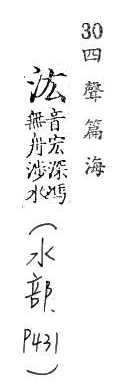 30四聲篇海
汯
音宏深馮
無舟涉水
（水部、P431）